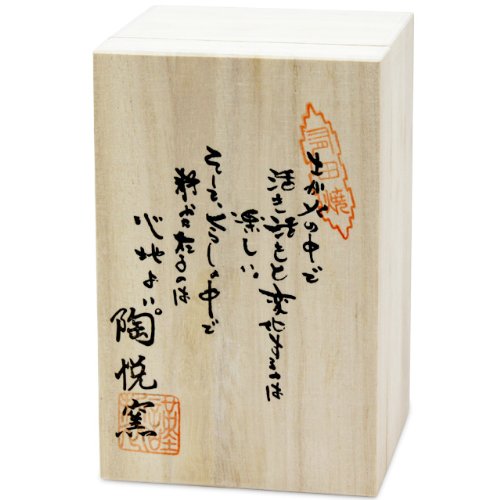 土が火の中で
活き活きと変化するのは
楽しい。
そして、くらしの中で
器が在るのは
心地よい。
陶悦窯
有田焼